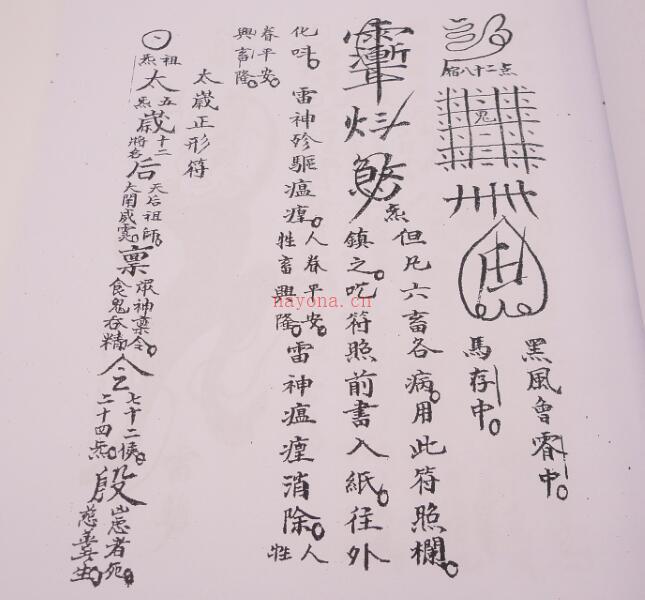 点二十八宿
鬼
黑風會 中。
馬存中。
炁
但凡六畜各病。用此符照欄
鎮之。吃符照前書入紙。往外
化吽。雷神殄驅瘟㾮。人眷平安。
牲畜興隆。雷神瘟㾮消除。人
牲
眷平安。
興畜隆。
太歲正形符
祖炁
太
五炁
歲
十二將名
后
天后祖師。
大開威靈。
禀
眾神禀令。
食鬼吞精。
令
七十二候。
二十四炁。
殷
祟者死。
慈善生。
nayona.cn